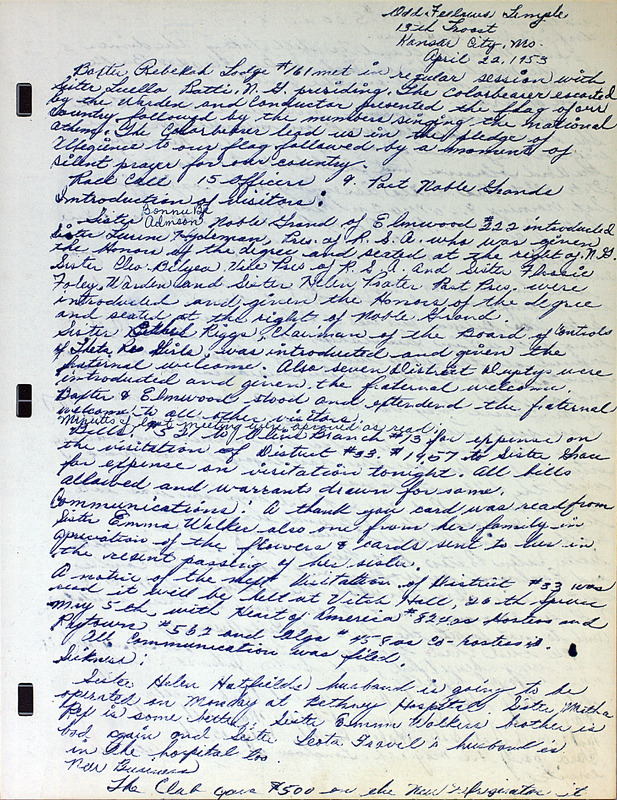 Odd Fellows Temple
13th Troost
Kansas City, Mo.
April 22, 1953
Baxter Rebekah Lodge #161 met in regular session with
Sister Luella Batti, N. G. presiding. The Colorbearer escorted
by the Warden and Conductor presented the flag of our
Country followed by the members singing the national
athem. The Colorbearer lead us in the pledge of
Allegience to our flag followed by a moments of
silent prayer for our country.
Roll Call 15 Officers 9. Past Noble Grands
Introduction of visitors:
Sister Bonnie B. Admson Noble Grand of Elmwood 222 introduced
Sister Pres. of R. S. A. who was given
the Honors of the degree and seated at the right of N. G.
Sister Cleo Vice Pres of R. S. A. and Sister
Foley Warden and Sister Helen Past Pres. were
introduced and given the Honors of the degree
and seated at the right of Noble Grand.
Sister Ethel Riggs, Chairman of the Board of Controls
of Theta Rho Girls, was introduced and given the
fraternal welcome. Also seven District Deputys were
introduced and given the fraternal welcome.
Baxter & Elmwood stood and extended the fraternal
welcome to all other visitors.
Minutes of last meeting were approved as read.
Bills: to Olive Branch #13 for expense on
the visitation of District #33. to Sister
for expense on visitation tonight. All bills
allowed and warrants drawn for same.
Communications: A thank you card was read from
Sister Emma Walker also one from her family in
apreciation of the flowers & cards sent to her in
the resent passing of her sister.
A notice of the next Visitation of District #33 was
read it will be held at Hall,
May 5th with Heart of America #824 as Hostess and
Raytown #532 and as co-hostess.
All Communication was filed.
Sickness:
Sister Helen Hatfields husband is going to be
operated on Monday at Bethany Hospital, Sister
is some better, Sister Emma Walkers brother is
bad again and Sister Leota husband is
in the hospital too.
New Business
The Club gave $500 on the new refrigirator it